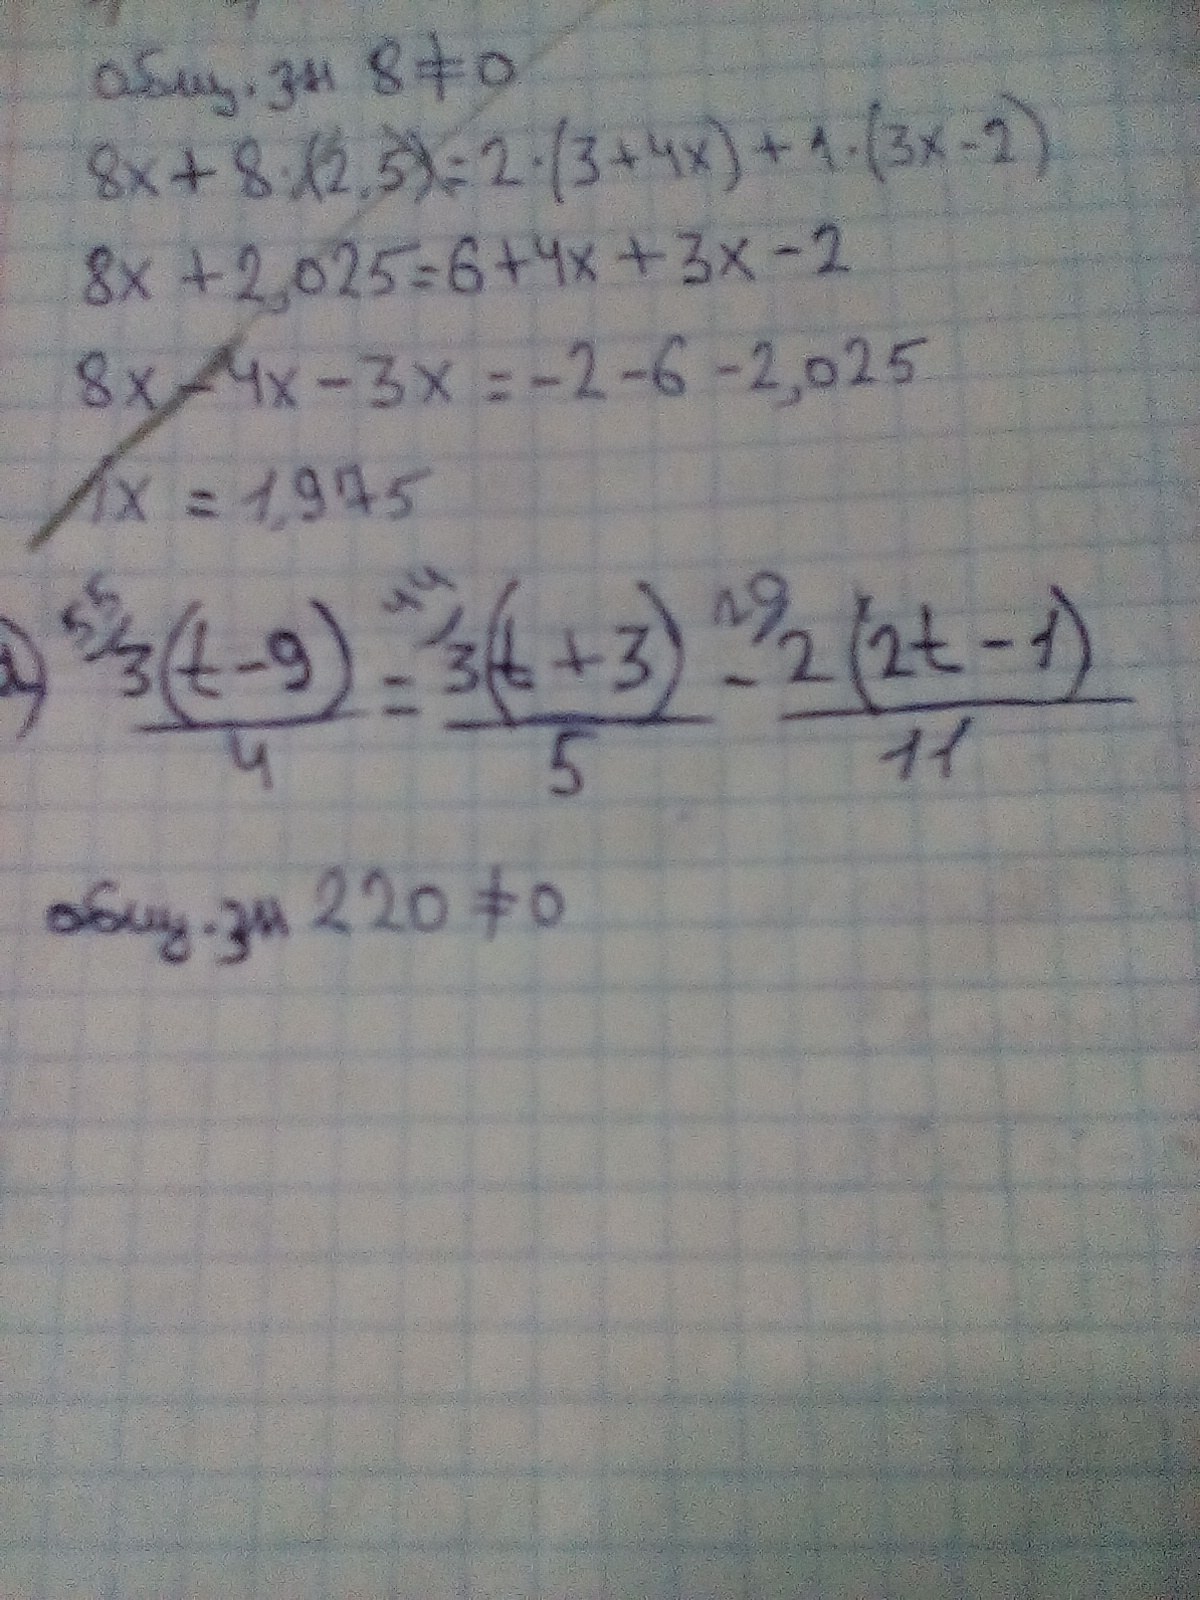 общ. зн 8≠0
8x + 8·(2,5) = 2·(3+4x) + 1·(3x-2)
8x + 2,025 = 6+4x + 3x - 2
8x - 4x - 3x = -2 - 6 - 2,025
1x = 1,975
55/3(t-9)/4 = 44/3(t+3)/5 - 2(2t-1)/11
общ. зн 220≠0